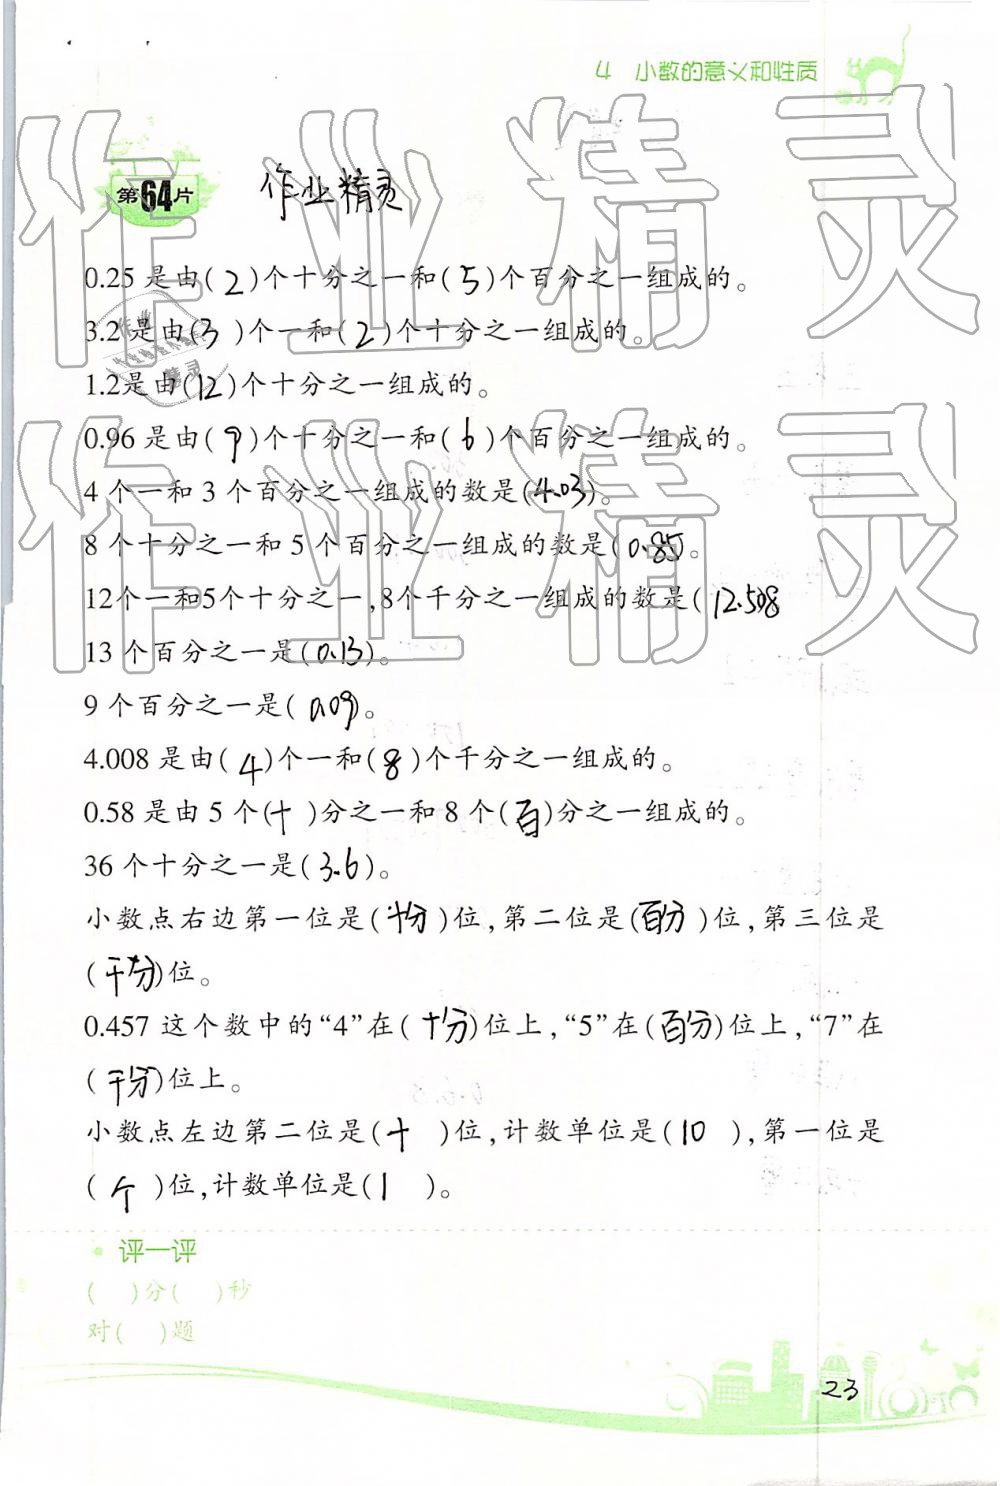 4 小数的意义和性质
第64片 作业精灵
0.25 是由(2)个十分之一和(5)个百分之一组成的。
3.2是由(3)个一和(2)个十分之一组成的。
1.2是由(12)个十分之一组成的。
0.96 是由(9)个十分之一和(6)个百分之一组成的。
4 个一和 3 个百分之一组成的数是(4.03)。
8 个十分之一和 5 个百分之一组成的数是(0.85)。
12个一和5个十分之一,8个千分之一组成的数是(12.508
13 个百分之一是(0.13)。
9 个百分之一是(0.09)。
4.008 是由(4)个一和(8)个千分之一组成的。
0.58 是由 5 个(十)分之一和 8 个(百)分之一组成的。
36 个十分之一是(3.6)。
小数点右边第一位是(十分)位,第二位是(百分)位,第三位是
(千分)位。
0.457 这个数中的“4”在(十分)位上,“5”在(百分)位上,“7”在
(千分)位上。
小数点左边第二位是(十)位,计数单位是(10),第一位是
(个)位,计数单位是(1)。
评一评
( )分( )秒
对( )题
23
作业精灵
作业精灵